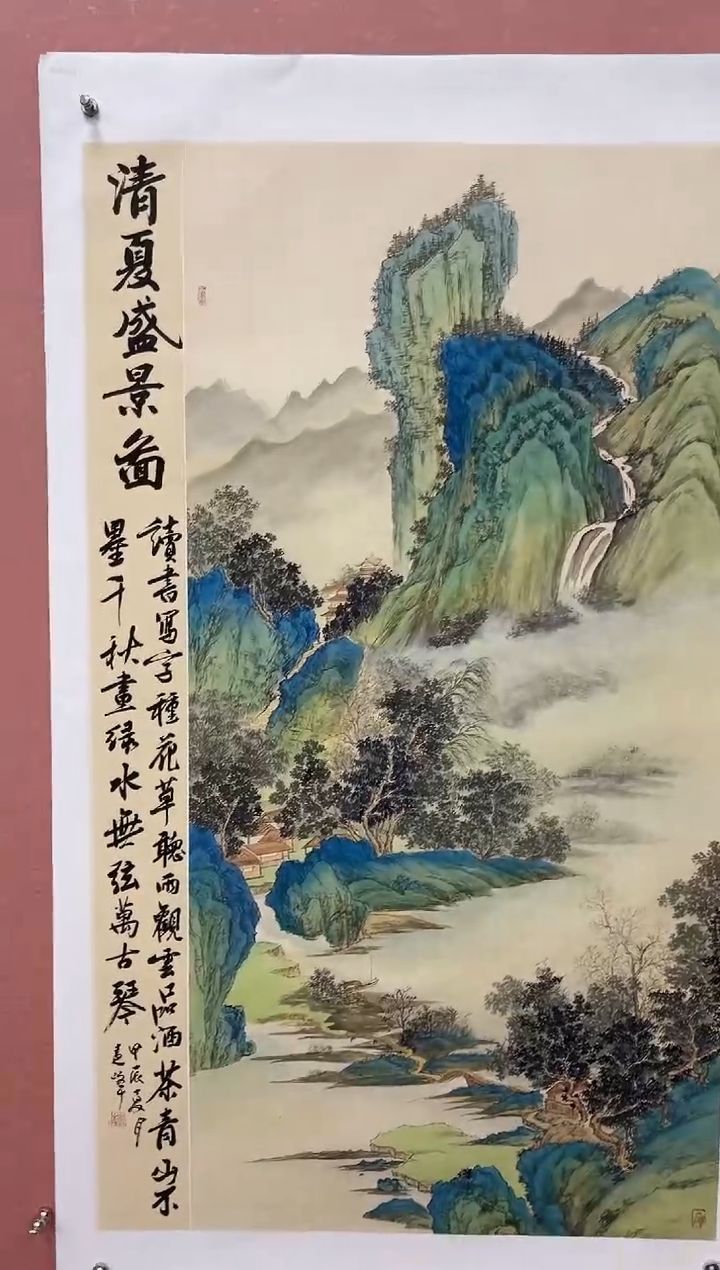 清夏盛景图
讀書寫字種花草聽雨觀雲品酒茶青山不
墨千秋畫绿水無弦萬古琴
甲辰夏月